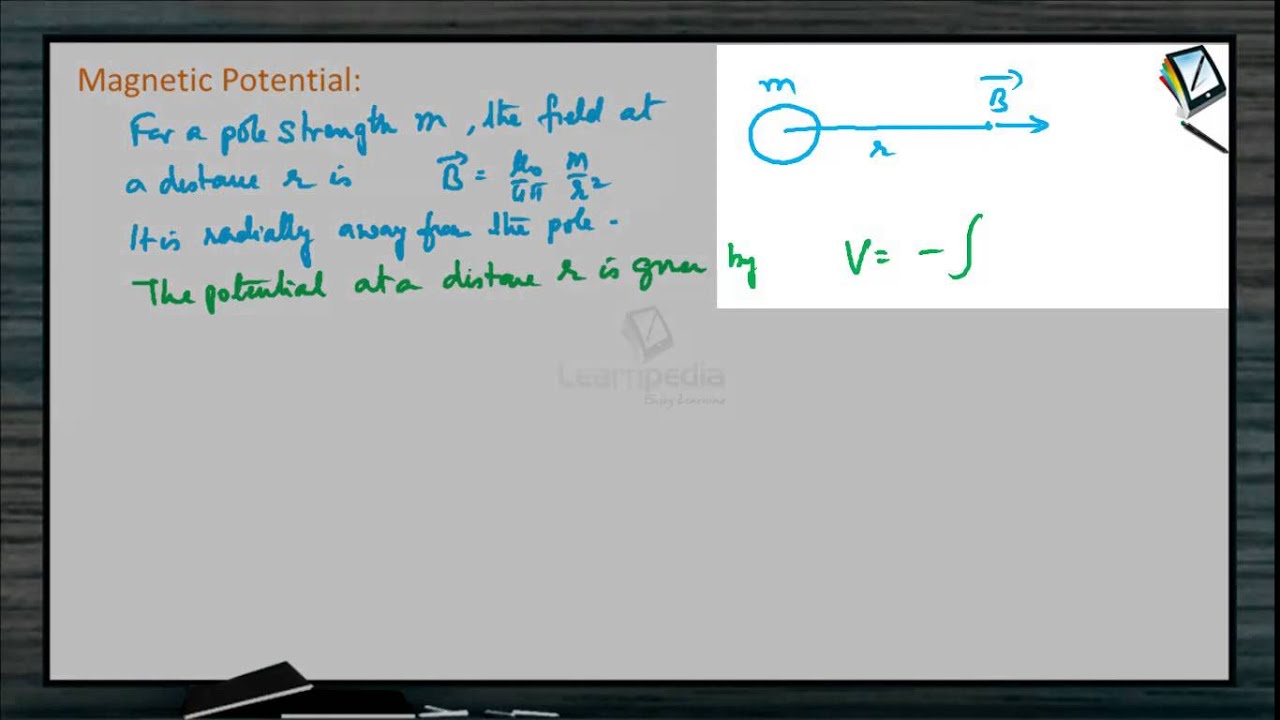 Magnetic Potential:
For a pole strength m, the field at
a distance r is B⃗ = μ₀/4π m/r²
It is radially away from the pole.
The potential at a distance r is given by V = - ∫
m
B⃗
r
Learnpedia
Enjoy Learning